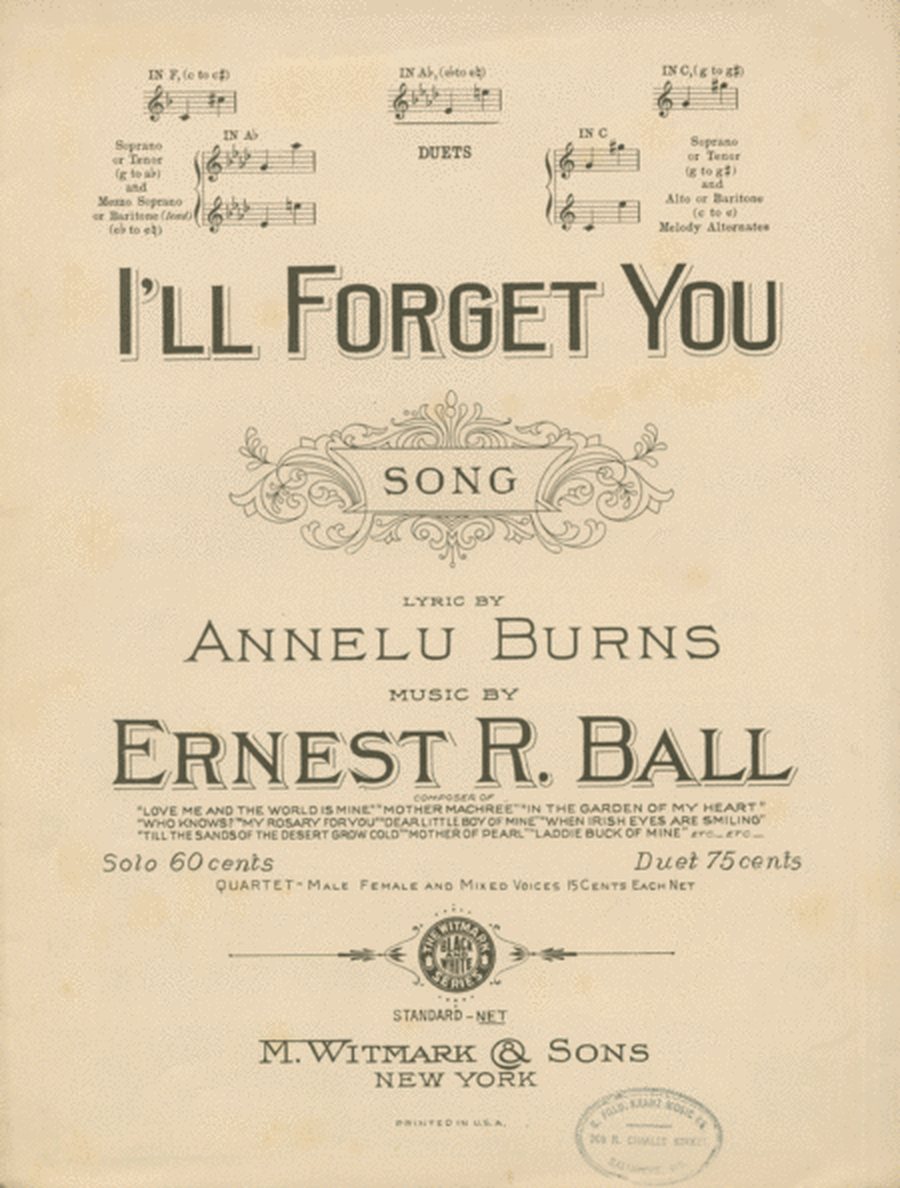 IN F, (c to c♯)
IN A♭, (e♭ to e♮)
IN C, (g to g♯)
DUETS
IN A♭
Soprano
or Tenor
(g to a♭)
and
Mezzo Soprano
or Baritone (lead)
(e♭ to e♮)
IN C
Soprano
or Tenor
(g to g♯)
and
Alto or Baritone
(c to e)
Melody Alternates
I'LL FORGET YOU
SONG
LYRIC BY
ANNELU BURNS
MUSIC BY
ERNEST R. BALL
COMPOSER OF
"LOVE ME AND THE WORLD IS MINE" "MOTHER MACHREE" "IN THE GARDEN OF MY HEART"
"WHO KNOWS?" "MY ROSARY FOR YOU" "DEAR LITTLE BOY OF MINE" "WHEN IRISH EYES ARE SMILING"
"TILL THE SANDS OF THE DESERT GROW COLD" "MOTHER OF PEARL" "LADDIE BUCK OF MINE" ETC. ETC.
Solo 60 cents
Duet 75 cents
QUARTET - MALE FEMALE AND MIXED VOICES 15 CENTS EACH NET
THE WITMARK
BLACK
AND
WHITE
SERIES
STANDARD - NET
M. WITMARK & SONS
NEW YORK
PRINTED IN U.S.A.
KRANZ MUSIC CO.
N. CHARLES STREET
BALTIMORE, MD.